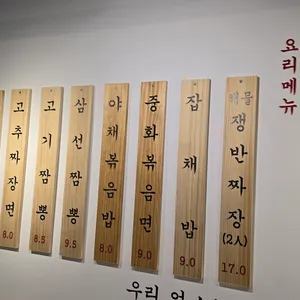 고추짜장면
8.0
고기짬뽕
8.5
삼선짬뽕
9.5
야채볶음밥
8.0
중화볶음면
9.0
잡채밥
9.0
해물쟁반짜장
(2人)
17.0
요리메뉴
우리